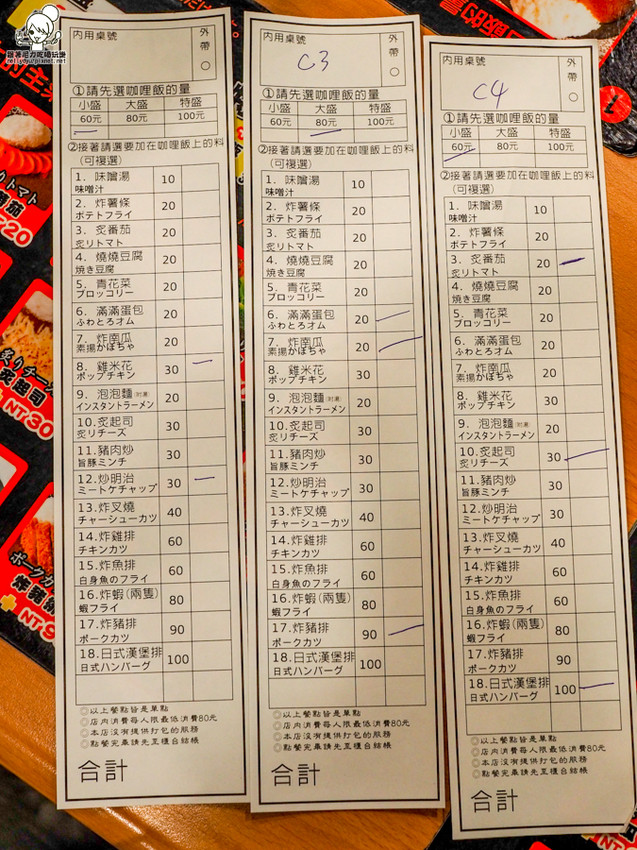 跟著尼力吃喝玩樂
nellydyu.pixnet.net
内用桌號
外帶
○
①請先選咖哩飯的量
小盛 大盛 特盛
60元 80元 100元
②接著請選要加在咖哩飯上的料
(可複選)
1. 味噌湯 10
味噌汁
2. 炸薯條 20
ポテトフライ
3. 炙番茄 20
炙りトマト
4. 燒燒豆腐 20
焼き豆腐
5. 青花菜 20
ブロッコリー
6. 滿滿蛋包 20
ふわとろオム
7. 炸南瓜 20
素揚かぼちゃ
8. 雞米花 30
ポップチキン
9. 泡泡麵 20
インスタントラーメン
10.炙起司 30
炙りチーズ
11.豬肉炒 30
旨豚ミンチ
12.炒明治 30
ミートケチャップ
13.炸叉燒 40
チャーシューカツ
14.炸雞排 60
チキンカツ
15.炸魚排 60
白身魚のフライ
16.炸蝦(兩隻) 80
蝦フライ
17.炸豬排 90
ポークカツ
18.日式漢堡排 100
日式ハンバーグ
◎以上餐點皆是單點
◎店内消費每人限最低消費80元
◎本店沒有提供打包的服務
◎點餐完畢請先至櫃台結帳
合計
内用桌號
C3
外帶
○
①請先選咖哩飯的量
小盛 大盛 特盛
60元 80元 100元
②接著請選要加在咖哩飯上的料
(可複選)
1. 味噌湯 10
味噌汁
2. 炸薯條 20
ポテトフライ
3. 炙番茄 20
炙りトマト
4. 燒燒豆腐 20
焼き豆腐
5. 青花菜 20
ブロッコリー
6. 滿滿蛋包 20
ふわとろオム
7. 炸南瓜 20
素揚かぼちゃ
8. 雞米花 30
ポップチキン
9. 泡泡麵 20
インスタントラーメン
10.炙起司 30
炙りチーズ
11.豬肉炒 30
旨豚ミンチ
12.炒明治 30
ミートケチャップ
13.炸叉燒 40
チャーシューカツ
14.炸雞排 60
チキンカツ
15.炸魚排 60
白身魚のフライ
16.炸蝦(兩隻) 80
蝦フライ
17.炸豬排 90
ポークカツ
18.日式漢堡排 100
日式ハンバーグ
◎以上餐點皆是單點
◎店内消費每人限最低消費80元
◎本店沒有提供打包的服務
◎點餐完畢請先至櫃台結帳
合計
内用桌號
C4
外帶
○
①請先選咖哩飯的量
小盛 大盛 特盛
60元 80元 100元
②接著請選要加在咖哩飯上的料
(可複選)
1. 味噌湯 10
味噌汁
2. 炸薯條 20
ポテトフライ
3. 炙番茄 20
炙りトマト
4. 燒燒豆腐 20
焼き豆腐
5. 青花菜 20
ブロッコリー
6. 滿滿蛋包 20
ふわとろオム
7. 炸南瓜 20
素揚かぼちゃ
8. 雞米花 30
ポップチキン
9. 泡泡麵 20
インスタントラーメン
10.炙起司 30
炙りチーズ
11.豬肉炒 30
旨豚ミンチ
12.炒明治 30
ミートケチャップ
13.炸叉燒 40
チャーシューカツ
14.炸雞排 60
チキンカツ
15.炸魚排 60
白身魚のフライ
16.炸蝦(兩隻) 80
蝦フライ
17.炸豬排 90
ポークカツ
18.日式漢堡排 100
日式ハンバーグ
◎以上餐點皆是單點
◎店内消費每人限最低消費80元
◎本店沒有提供打包的服務
◎點餐完畢請先至櫃台結帳
合計